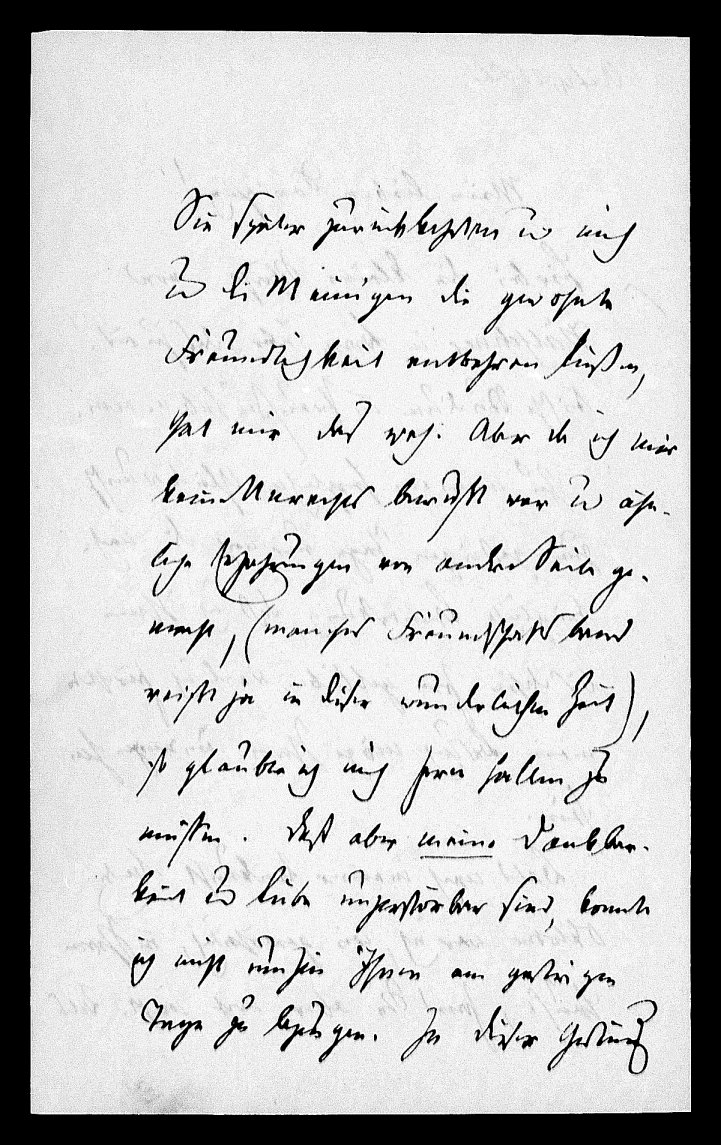 Sie später zurückkehrten u mich
u die Meinigen die gewohnte
Freundlichkeit entbehren ließen,
that mir das weh. Aber da ich mir
keines Unrechts bewußt war u ähn-
liche Erfahrungen von andrer Seite ge-
macht, (manches Freundschaftsband
reißt ja in dieser wunderlichen Zeit),
so glaubte ich mich fern halten zu
müssen. Daß aber meine Dankbar-
keit u Liebe unzerstörbar sind, konnte
ich nicht umhin Ihnen am gestrigen
Tage zu bezeugen. In dieser